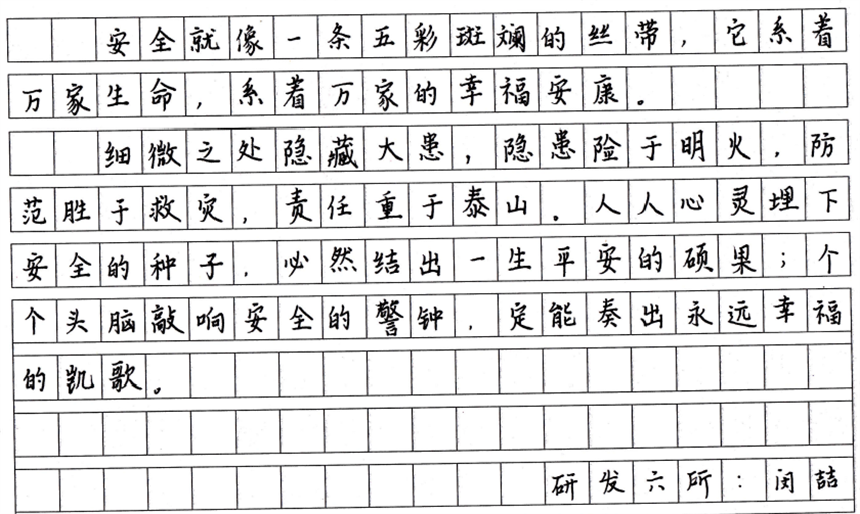 安全就像一条五彩斑斓的丝带，它系着
万家生命，系着万家的幸福安康。
细微之处隐藏大患，隐患险于明火，防
范胜于救灾，责任重于泰山。人人心灵埋下
安全的种子，必然结出一生平安的硕果；个
个头脑敲响安全的警钟，定能奏出永远幸福
的凯歌。
研发六所：闵喆